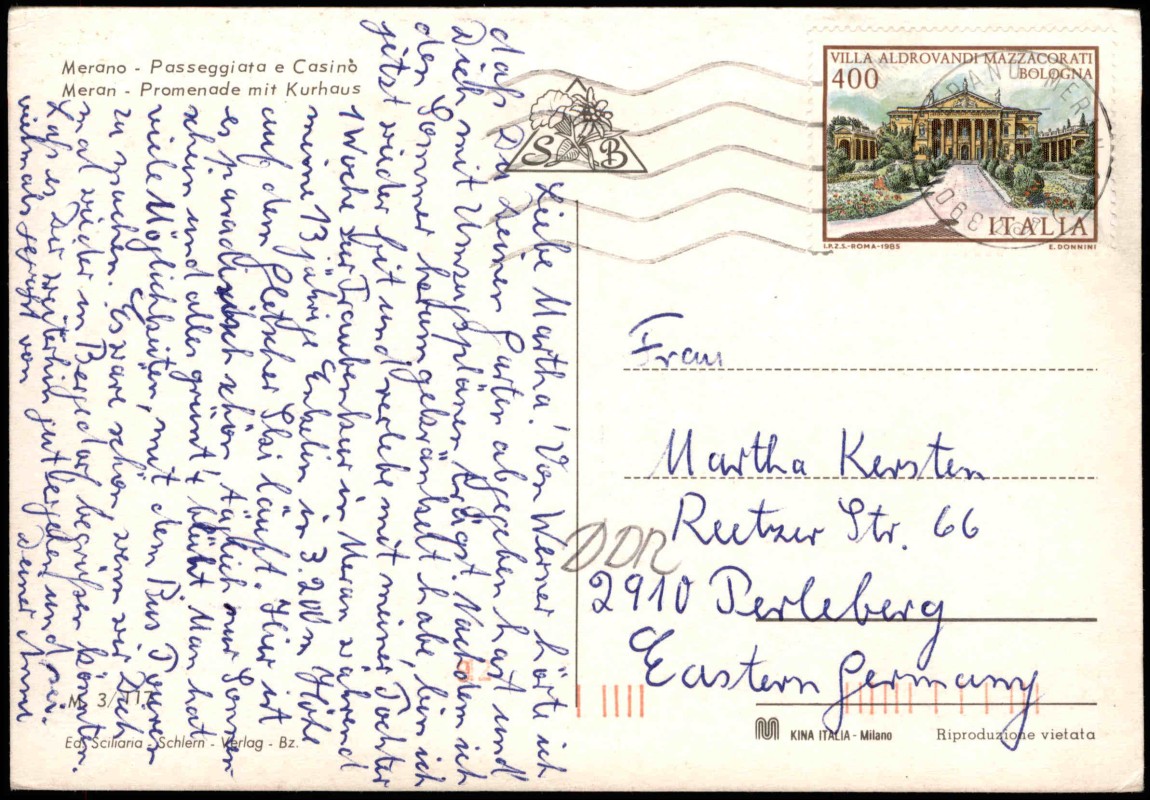 Merano - Passeggiata e Casinò
Meran - Promenade mit Kurhaus
S B
VILLA ALDROVANDI MAZZACORATI
BOLOGNA
400
ITALIA
I.P.Z.S.-ROMA-1985
E. DONNINI
Liebe Martha! Von Werner hörte ich
daß Du Deinen Garten abgegeben hast und
Dich mit Umzugsplänen trägst. Nachdem ich
den Sommer herumgekränkelt habe, bin ich
jetzt wieder fit und verlebe mit meiner Tochter
1 Woche zur Traubenkur in Meran während
meine 13 jährige Enkelin in 3.200 m Höhe
auf dem Gletscher Ski läuft. Hier ist
es paradisisch schön, täglich nur Sonnen-
schein und alles grünt + blüht. Man hat
viele Möglichkeiten, mit dem Bus Touren
zu machen. Es wäre schön wenn wir Dich
mal wieder in Bergedorf begrüßen könnten.
Laß es Dir weiterhin gut ergehen und sei
vielmals gegrüßt von Deiner Anni
Frau
Martha Kersten
Reetzer Str. 66
DDR
2910 Perleberg
Eastern Germany
M 3/117
Ed. Sciliaria - Schlern - Verlag - Bz.
KINA ITALIA - Milano
Riproduzione vietata